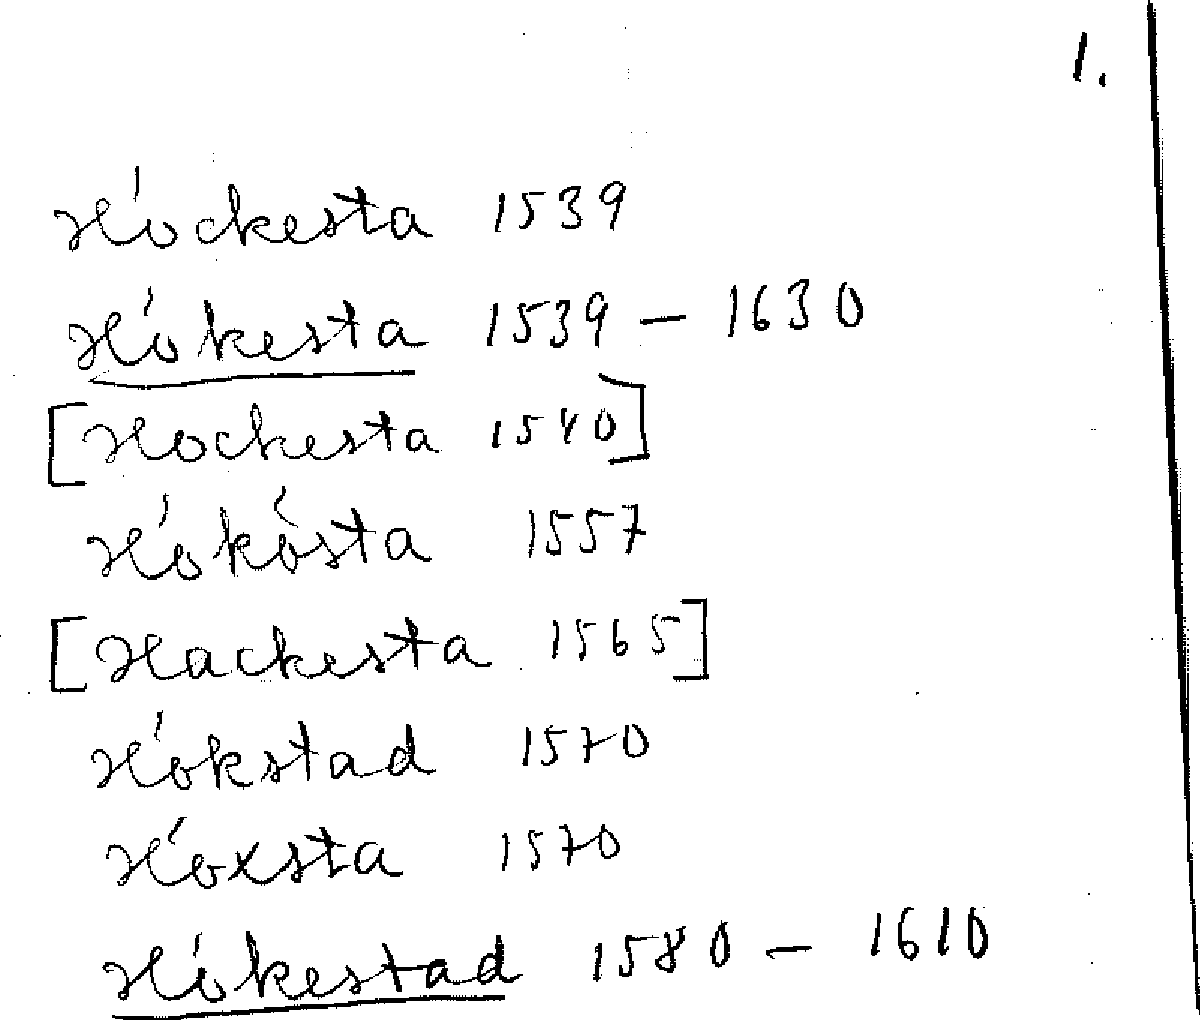 1.
Hóckesta 1539
Hókesta 1539 – 1630
[Hockesta 1540]
Hókósta 1557
[Hackesta 1565]
Hókstad 1570
Hóxsta 1570
Hókestad 1580 – 1610